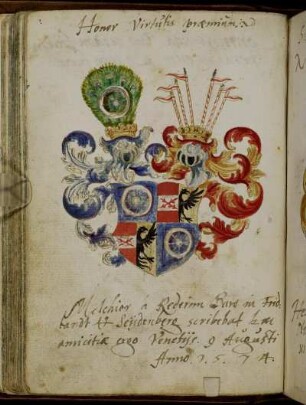 Honor Virtutis præmium
Melchior a Redern Baro in Frid
landt et Seydenberg scribebat
amicitiæ ergo Venetijs 9 Augusti
Anno 1.5.7.4.